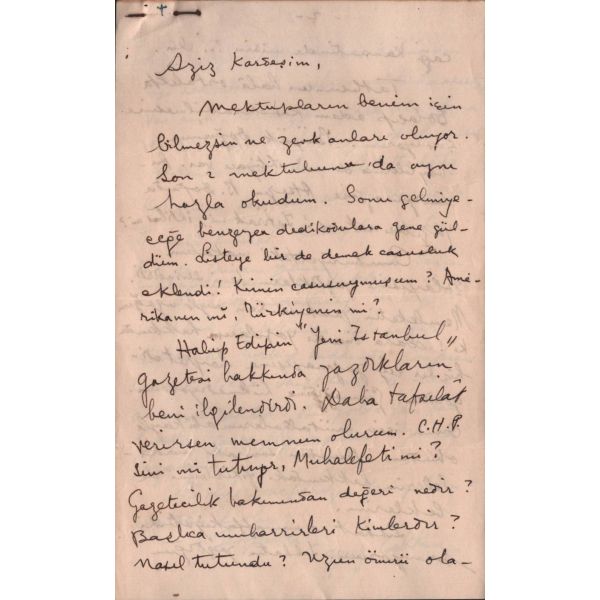 Aziz Kardeşim,
Mektupların benim için
bilmezsin ne zevk anları oluyor.
Son 2 mektubunu da aynı
hazla okudum. Sonu gelmiye-
ceğe benzeyen dedikodulara gene gül-
düm. Listeye bir de demek casusluk
eklendi! Kimin casusuymuşum? Ame-
rikanın mı, Türkiyenin mi?
Halip Edipin "Yeni Istanbul"
gazetesi hakkında yazdıkların
beni ilgilendirdi. Daha tafsilât
verirsen memnun olurum. C.H.P.
sini mi tutuyor, Muhalefeti mi?
Gazetecilik bakımından değeri nedir?
Başlıca muharrirleri kimlerdir?
Nasıl tutundu? Uzun ömürü ola-